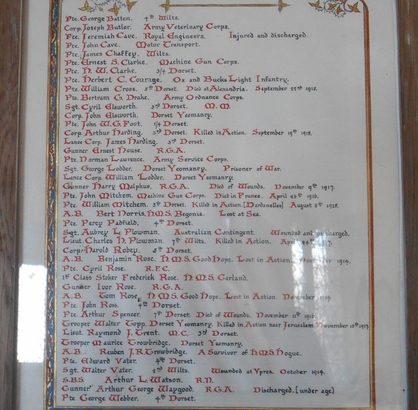 Pte. George Batten. 4th Wilts.
Corp. Joseph Butler. Army Veterinary Corps.
Pte. Jeremiah Cave. Royal Engineers. Injured and discharged.
Pte. John Cave. Motor Transport.
Pte. James Chaffey. Wilts.
Pte. Ernest S. Clarke. Machine Gun Corps.
Pte. H. W. Clarke. 3/4 Dorset.
Pte. Herbert C. Courage. Ox and Bucks Light Infantry.
Pte. William Cross. 5th Dorset. Died at Alexandria. September
Pte. Bertram G. Drake. Army Ordnance Corps.
Sgt. Cyril Elsworth. 3rd Dorset. M.M.
Corp. John Elsworth. Dorset Yeomanry.
Pte. John W.G. Foot. 1/4 Dorset.
Corp. Arthur Harding. Dorset. Killed in Action. September 1918.
Lance Corp. James Harding. Dorset.
Gunner Ernest House. R.G.A.
Pte. Norman Lawrence. Army Service Corps.
Sgt. George Lodder. Dorset Yeomanry. Prisoner of War.
Lance Corp. William Lodder. Dorset Yeomanry.
Gunner Harry Malphus. R.G.A. Died of Wounds. November 1917.
Pte. John Mitchem. Machine Gun Corps. Died in France. April
Pte. William Mitchem. 5th Dorset. Killed in Action. [Dardanelles] August
A.B. Bert Norris. H.M.S. Begonia. Lost at Sea.
Pte. Percy Padfield. 4th Dorset.
Sgt. Aubrey L. Plowman. Australian Contingent. Wounded and discharged.
Lieut. Charles H. Plowman. 7th Wilts. Killed in Action.
Corp. Harold Robey. Dorset.
A.B. Benjamin Rose. H.M.S. Good Hope. Lost in Action.
Pte. Cyril Rose. R.F.C.
1st Class Stoker Frederick Rose. H.M.S.
Gunner Ivor Rose. R.G.A.
A.B. Tom Rose. H.M.S. Good Hope. Lost in Action. November
Pte. John Ross. 4th Dorset.
Pte. Arthur Spencer. Dorset. Died of Wounds. November
Trooper Walter Dorset Yeomanry. Killed in Action near Jerusalem. November
Lieut. Raymond J. Trent. M.C. 3rd Dorset.
Trooper Maurice Trowbridge. Dorset Yeomanry.
A.B. Reuben J.R. Trowbridge. A Survivor of H.M.S. Hogue.
Pte. Edward Vater. 4th Dorset.
Sgt. Walter Vater. Wilts. Wounded at Ypres. October 1914.
S.B.S. Arthur L. Watson. R.N.
Gunner Arthur George Waygood. R.G.A. Discharged. [under age]
Pte. George Webber. 4th Dorset.